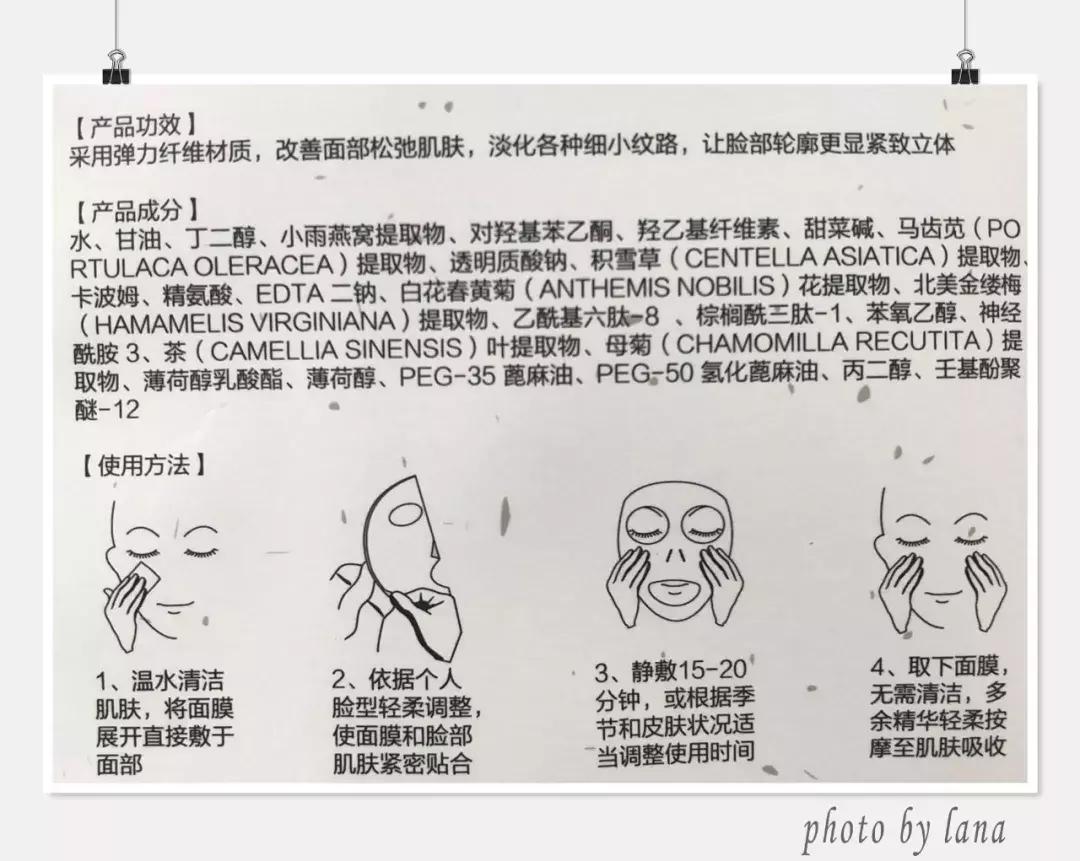 【产品功效】
采用弹力纤维材质，改善面部松弛肌肤，淡化各种细小纹路，让脸部轮廓更显紧致立体
【产品成分】
水、甘油、丁二醇、小雨燕窝提取物、对羟基苯乙酮、羟乙基纤维素、甜菜碱、马齿苋（PO
RTULACA OLERACEA）提取物、透明质酸钠、积雪草（CENTELLA ASIATICA）提取物、
卡波姆、精氨酸、EDTA 二钠、白花春黄菊（ANTHEMIS NOBILIS）花提取物、北美金缕梅
（HAMAMELIS VIRGINIANA）提取物、乙酰基六肽-8 、棕榈酰三肽-1、苯氧乙醇、神经
酰胺 3、茶（CAMELLIA SINENSIS）叶提取物、母菊（CHAMOMILLA RECUTITA）提
取物、薄荷醇乳酸酯、薄荷醇、PEG-35 蓖麻油、PEG-50 氢化蓖麻油、丙二醇、壬基酚聚
醚-12
【使用方法】
1、温水清洁
肌肤，将面膜
展开直接敷于
面部
2、依据个人
脸型轻柔调整，
使面膜和脸部
肌肤紧密贴合
3、静敷15-20
分钟，或根据季
节和皮肤状况适
当调整使用时间
4、取下面膜，
无需清洁，多
余精华轻柔按
摩至肌肤吸收
photo by lana